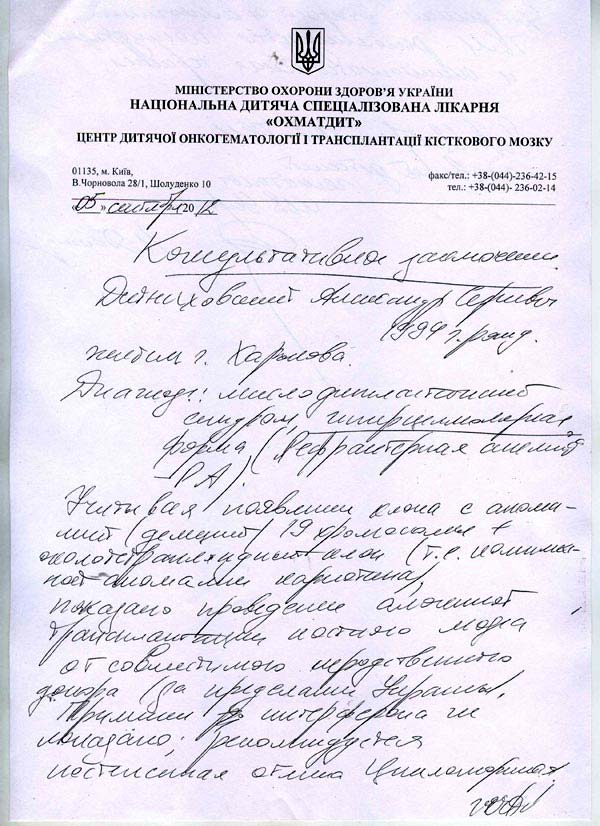 МІНІСТЕРСТВО ОХОРОНИ ЗДОРОВ'Я УКРАЇНИ
НАЦІОНАЛЬНА ДИТЯЧА СПЕЦІАЛІЗОВАНА ЛІКАРНЯ
«ОХМАТДИТ»
ЦЕНТР ДИТЯЧОЇ ОНКОГЕМАТОЛОГІЇ І ТРАНСПЛАНТАЦІЇ КІСТКОВОГО МОЗКУ
01135, м. Київ,
В.Чорновола 28/1, Шолуденко 10
факс/тел.: +38-(044)-236-42-15
тел.: +38-(044)- 236-02-14
«05» сентября 2012
Консультативное заключение.
Александр Сергеевич
1994 г. рожд.
жител г. Харькова.
Диагноз: миелодиспластический
синдром гиперцеллюлярная
форма (Рефрактерная анемия
- РА).
Учитывая появление клона с анома-
лией (делеция) 19 хромосомы +
клон (т.е.
аномалии кариотипа)
показано проведение аллогенной
трансплантации костного мозга
от совместимого неродственного
донора (за пределами Украины).
интерферона не
показано; рекомендуется
постепенная отмена Циклоспорина